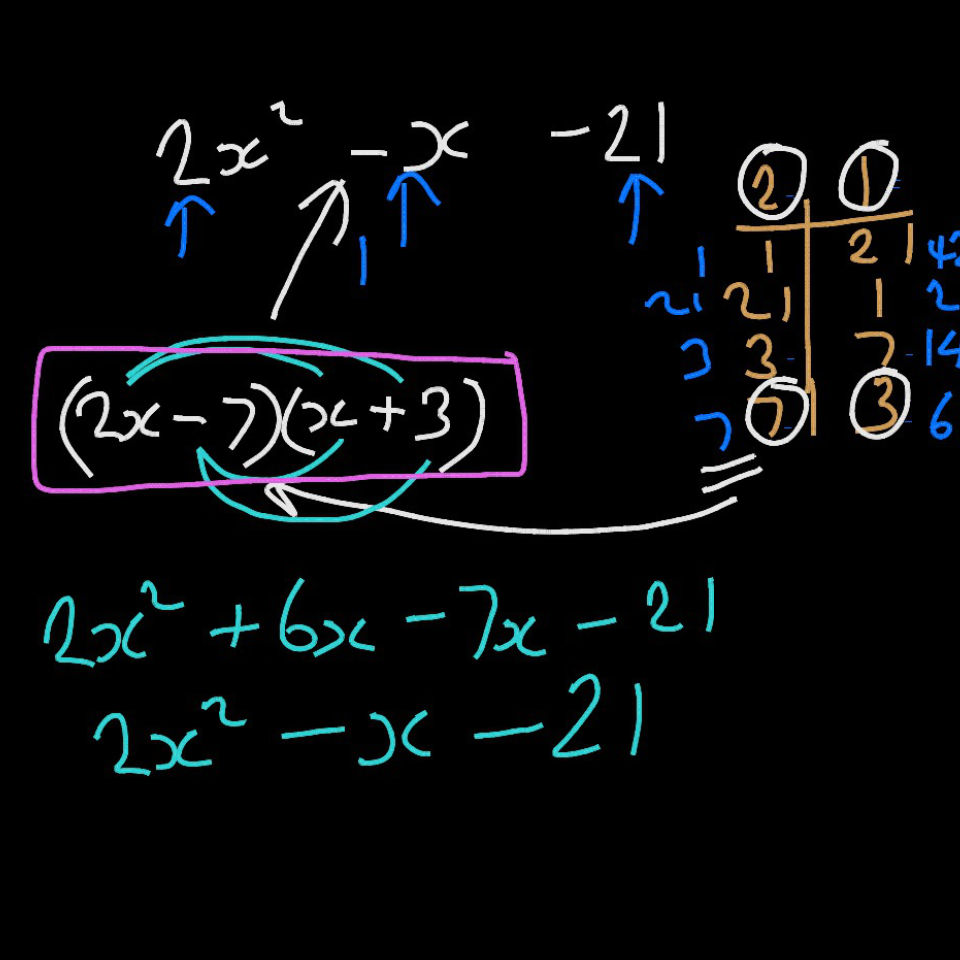 2x² - x - 21
1
2 1
1 1 21 42
21 21 1 2
3 3 7 14
7 7 3 6
(2x - 7)(x + 3)
2x² + 6x - 7x - 21
2x² - x - 21